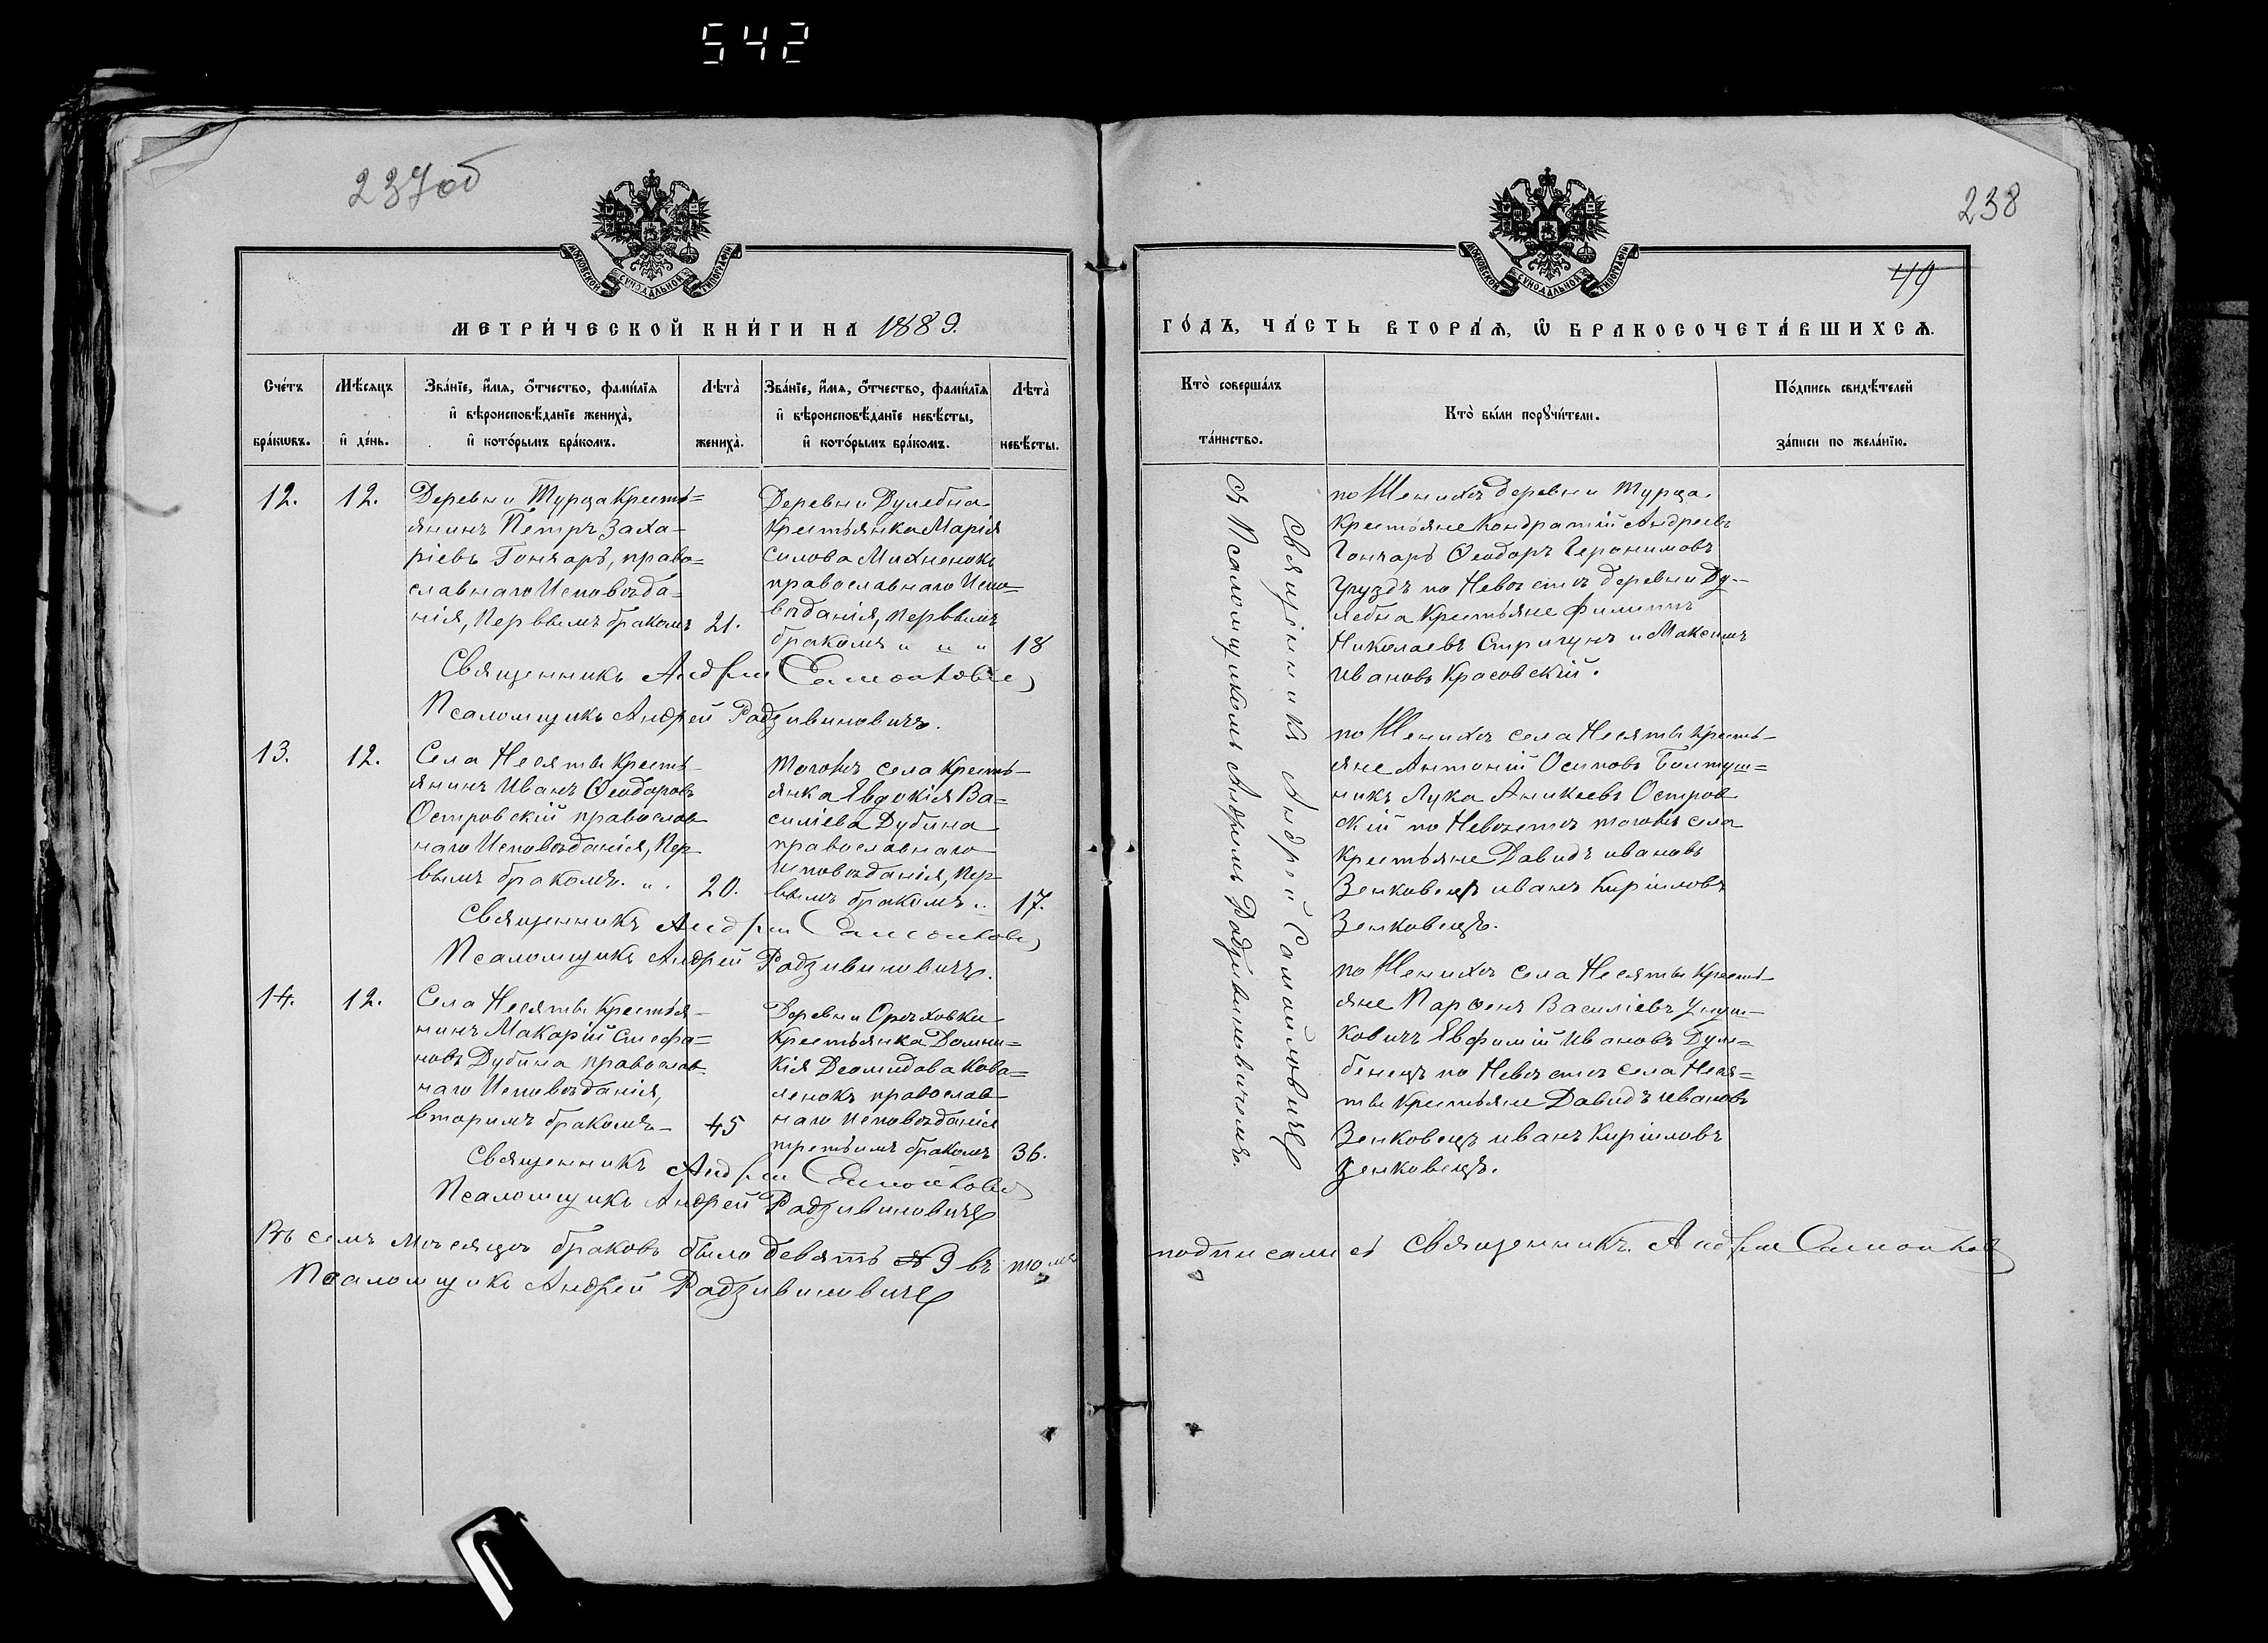 542
237 об
238
49
МОСКОВСКОЙ СѴНОДАЛЬНОЙ ТИПОГРАФІИ
МОСКОВСКОЙ СѴНОДАЛЬНОЙ ТИПОГРАФІИ
МЕТРИ́ЧЕСКОЙ КНИ́ГИ НА 1889.
Сче́тъ бра́кѡвъ.
Мѣ́сяцъ и҆ де́нь.
Зва́нїе, и҆́мѧ, ѻ҆́тчество, фами́лїѧ
и҆ вѣроисповѣ́данїе жениха̀,
и҆ кото́рымъ бра́комъ.
Лѣта̀ жениха̀.
Зва́нїе, и҆́мѧ, ѻ҆́тчество, фами́лїѧ
и҆ вѣроисповѣ́данїе невѣ́сты,
и҆ кото́рымъ бра́комъ.
Лѣта̀ невѣ́сты.
12.
12.
Деревни Турца Кресть=
янинъ Петръ Заха=
ріевъ Гончаръ, право=
славнаго Исповѣда=
нія, Первымъ бракомъ
21.
Деревни Дулебна
Крестьянка Марія
Силова Михненокъ
православнаго Испо=
вѣданія, Первымъ
бракомъ " " "
18
Священникъ Андрей Самойлович
Псаломщикъ Андрей Радзивиновичъ.
13.
12.
Села Несяты Кресть=
янинъ Иванъ Ѳеодоровъ
Островскій православ
наго Исповѣданія, Пер
вымъ бракомъ. ".
20.
тогожъ села Кресть=
янка Евдокія Ва=
силіева Дубина
православнаго
Исповѣданія, Пер
вымъ бракомъ "
17.
Священникъ Андрей Самойлович
Псаломщикъ Андрей Радзивиновичъ.
14.
12.
Села Несяты Крестья=
нинъ Макарій Стефа=
новъ Дубина православ
наго Исповѣданія,
вторимъ бракомъ
45
Деревни Орѣховки
Крестьянка Домни=
кія Деомидова Кова=
ленокъ православ
наго Исповѣданія
третьимъ бракомъ
36.
Священникъ Андрей Самойлович
Псаломщикъ Андрей Радзивиновичъ
Въ семъ мѣсяцѣ браковъ было девять 9 въ томъ
Псаломщикъ Андрей Радзивиновичъ
ГО́ДЪ, ЧА́СТЬ ВТОРА́Ѧ, Ѡ҆ БРАКОСОЧЕТА́ВШИХСѦ.
Кто̀ соверша́лъ та́инство.
Кто̀ бы́ли порꙋчи́тели.
По́дпись свидѣ́телей
за́писи по жела́нїю.
Священникъ Андрей Самойловичъ
съ Псаломщикомъ Андреемъ Радзивиновичемъ.
по Женихѣ деревни Турца
Крестьяне Кондратій Андреевъ
Гончаръ Ѳеодоръ Іеронимовъ
Груздъ по Невѣстѣ деревни Ду=
лебна Крестьяне Филиппъ
Николаевъ Спригунъ и Максимъ
Ивановъ Красовскій.
по Женихѣ села Несяты Кресть=
яне Антоній Осиповъ Болтуш=
никъ Лука Аникеевъ Остров
скій по Невѣстѣ тогожъ села
Крестьяне Давидъ Ивановъ
Зенковецъ Иванъ Кириловъ
Зенковецъ.
по Женихѣ села Несяты Кресть=
яне Парѳенъ Василіевъ
Евфимій Ивановъ Дуле=
бенецъ по Невѣстѣ села Неся=
ты Крестьяне Давидъ Ивановъ
Зенковецъ Иванъ Кириловъ
Зенковецъ.
подписались Священникъ. Андрей Самойлович